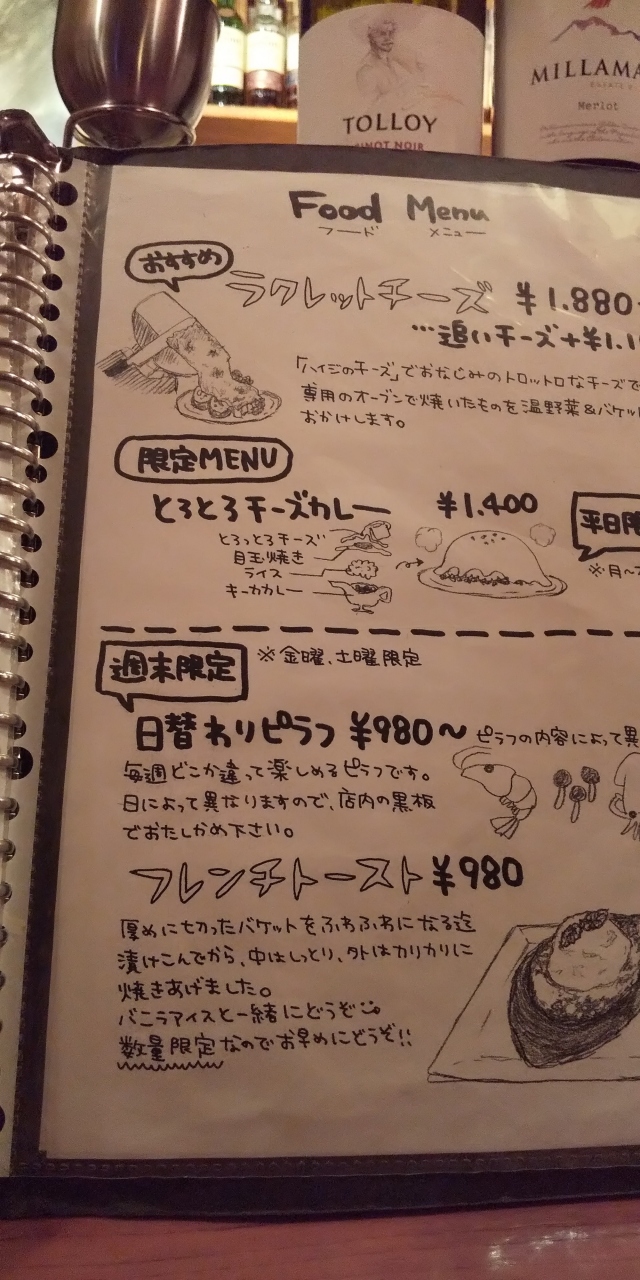 TOLLOY
PINOT NOIR
MILLAMA
Merlot
Food Menu
フード メニュー
おすすめ
ラクレットチーズ ¥1.880
…追いチーズ+¥1.1
「ハイジのチーズ」でおなじみのトロットロなチーズで
専用のオーブンで焼いたものを温野菜&バケット
おかけします。
限定MENU
とろとろチーズカレー ¥1.400
平日限
※月〜
とろっとろチーズ
目玉焼き
ライス
キーカカレー
週末限定 ※金曜、土曜限定
日替わりピラフ ¥980〜 ピラフの内容によって異
毎週どこか違って楽しめるピラフです。
日によって異なりますので、店内の黒板
でおたしかめ下さい。
フレンチトースト ¥980
厚めに切ったバケットをふわふわになる迄
漬けこんでから、中はしっとり、外はカリカリに
焼きあげました。
バニラアイスと一緒にどうぞ
数量限定なのでお早めにどうぞ!!